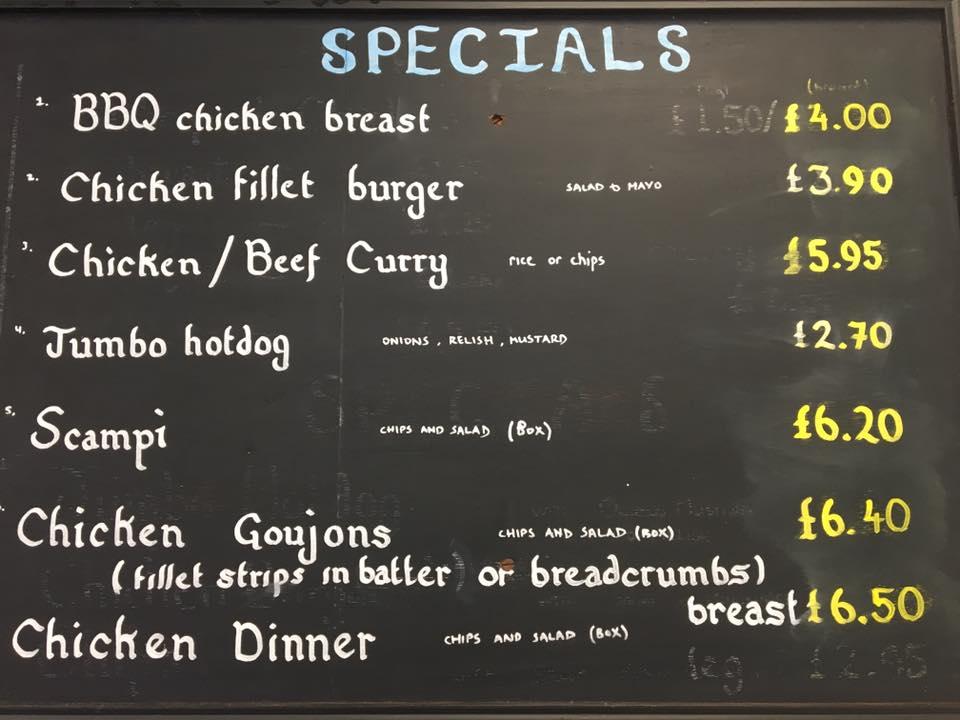 SPECIALS
1. BBQ chicken breast £1.50/ £4.00
2. Chicken fillet burger SALAD & MAYO £3.90
3. Chicken / Beef Curry rice or chips £5.95
4. Jumbo hotdog ONIONS, RELISH, MUSTARD £2.70
5. Scampi CHIPS AND SALAD (BOX) £6.20
Chicken Goujons CHIPS AND SALAD (BOX) £6.40
(fillet strips in batter or breadcrumbs)
breast £6.50
Chicken Dinner CHIPS AND SALAD (BOX)
leg £2.95